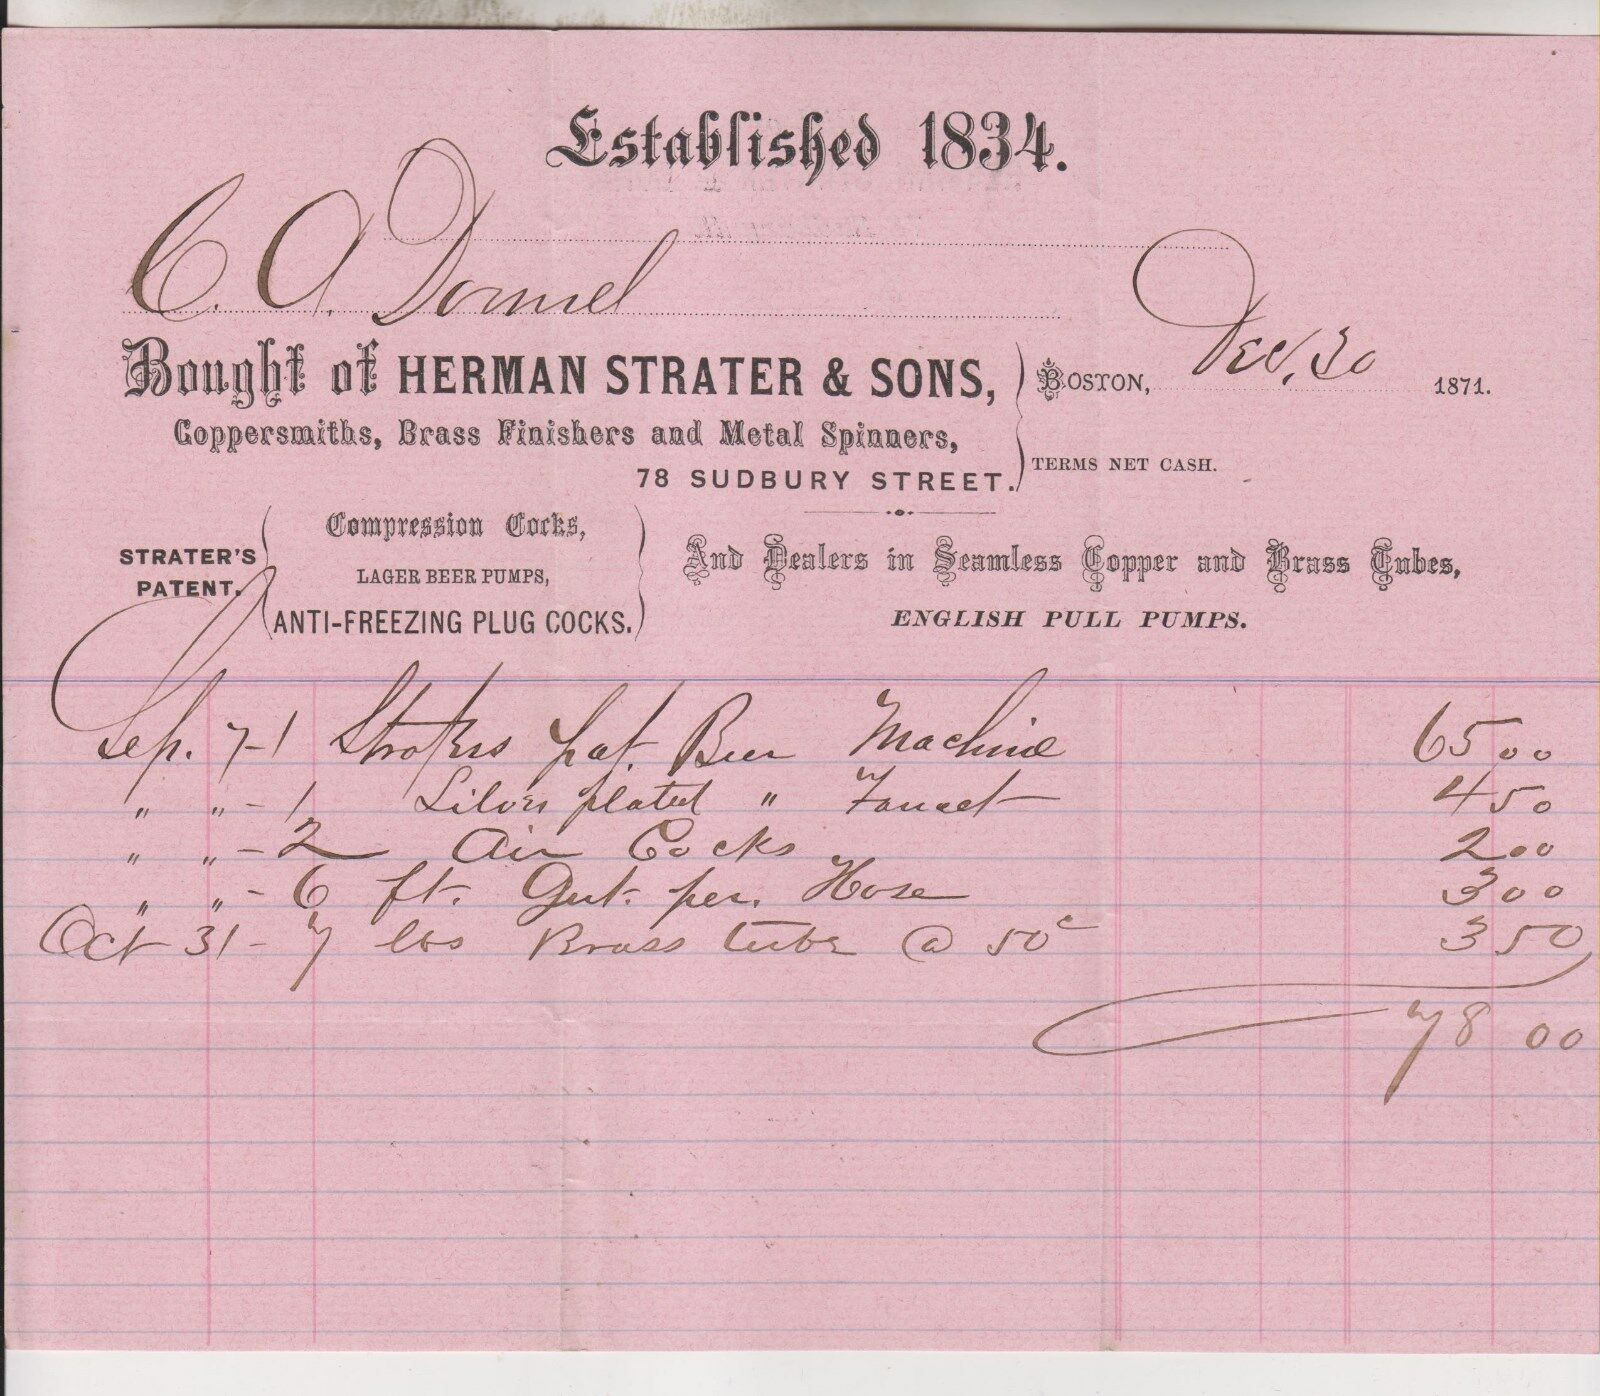 Established 1834.
C. A. Donnel
Bought of HERMAN STRATER & SONS,
BOSTON, Dec. 30 1871.
Coppersmiths, Brass Finishers and Metal Spinners,
78 SUDBURY STREET.
TERMS NET CASH.
STRATER'S PATENT.
Compression Cocks,
LAGER BEER PUMPS,
ANTI-FREEZING PLUG COCKS.
And Dealers in Seamless Copper and Brass Tubes,
ENGLISH PULL PUMPS.
Sep. 7 - 1 Straters pat. Beer Machine 65 00
" " - 1 Silver plated " Faucet 4 50
" " - 2 Air Cocks 2 00
" " - 6 ft. Gut. per. Hose 3 00
Oct 31 - 7 lbs Brass tube @ 50c 3 50
78 00